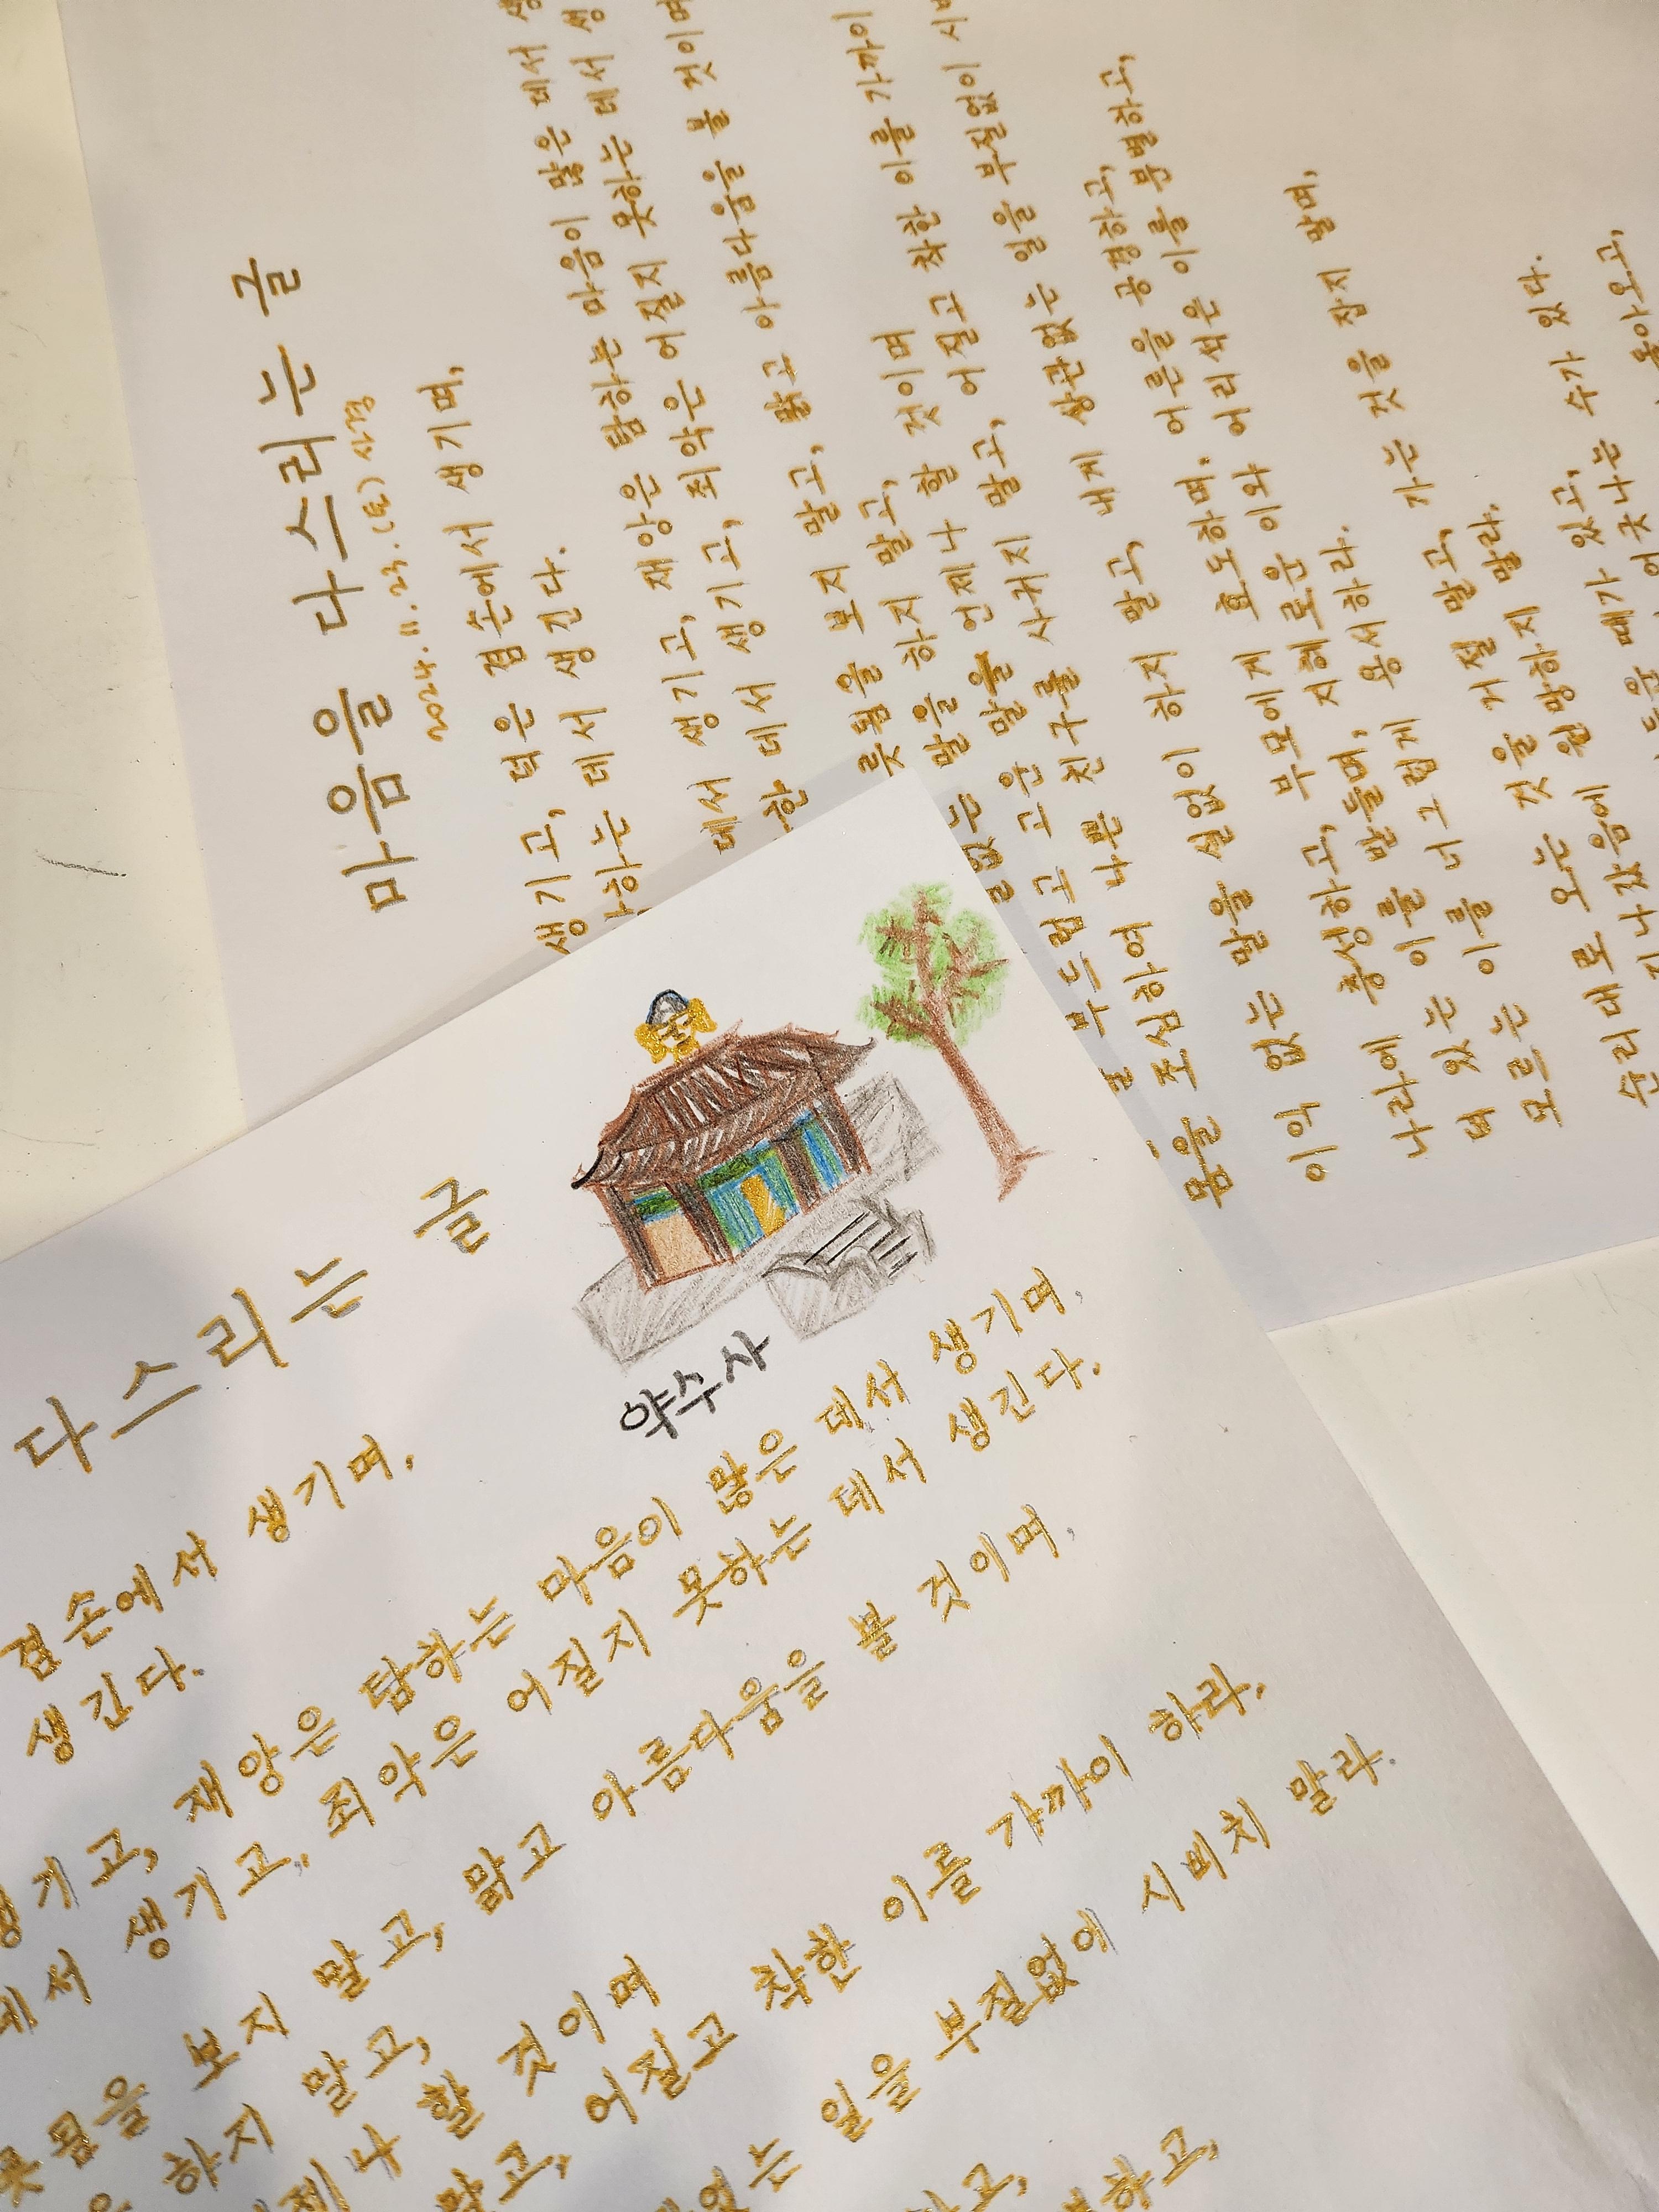 마음을 다스리는 글
2024. 11. 23. (토) 사경
생기고, 덕은 겸손에서 생기며,
하는 데서 생긴다.
데서 생기고, 재앙은 탐하는 마음이 많은 데서 생
한 데서 생기고, 죄악은 어질지 못하는 데서 생
릇됨을 보지 말고, 맑고 아름다움을 볼 것이며
없는 말을 하지 말고,
부드럽고 고운 말을 언제나 할 것이며
몸을 조심하여 나쁜 친구를 사귀지 말고, 어질고 착한 이를 가까이
이익 없는 말을 실없이 하지 말고, 내게 상관없는 일을 부질없이 시비
나라에 충성하고, 부모에게 효도하며, 어른을 공경하고,
덕 있는 이를 받들며, 지혜로운 이와 어리석은 이를 분별하고,
모르는 이를 너그럽게 용서하라.
순리대로 오는 것을 거절 말고, 가는 것을 잡지 말며,
지나갔음에 원망하지 말라.
때가 있고, 수가 있다.
다스리는 글
약수사
겸손에서 생기며,
생긴다.
생기고, 재앙은 탐하는 마음이 많은 데서 생기며,
데서 생기고, 죄악은 어질지 못하는 데서 생긴다.
못됨을 보지 말고, 맑고 아름다움을 볼 것이며,
하지 말고,
제나 할 것이며
말고, 어질고 착한 이를 가까이 하라.
없는 일을 부질없에 시비치 말라.
하고,